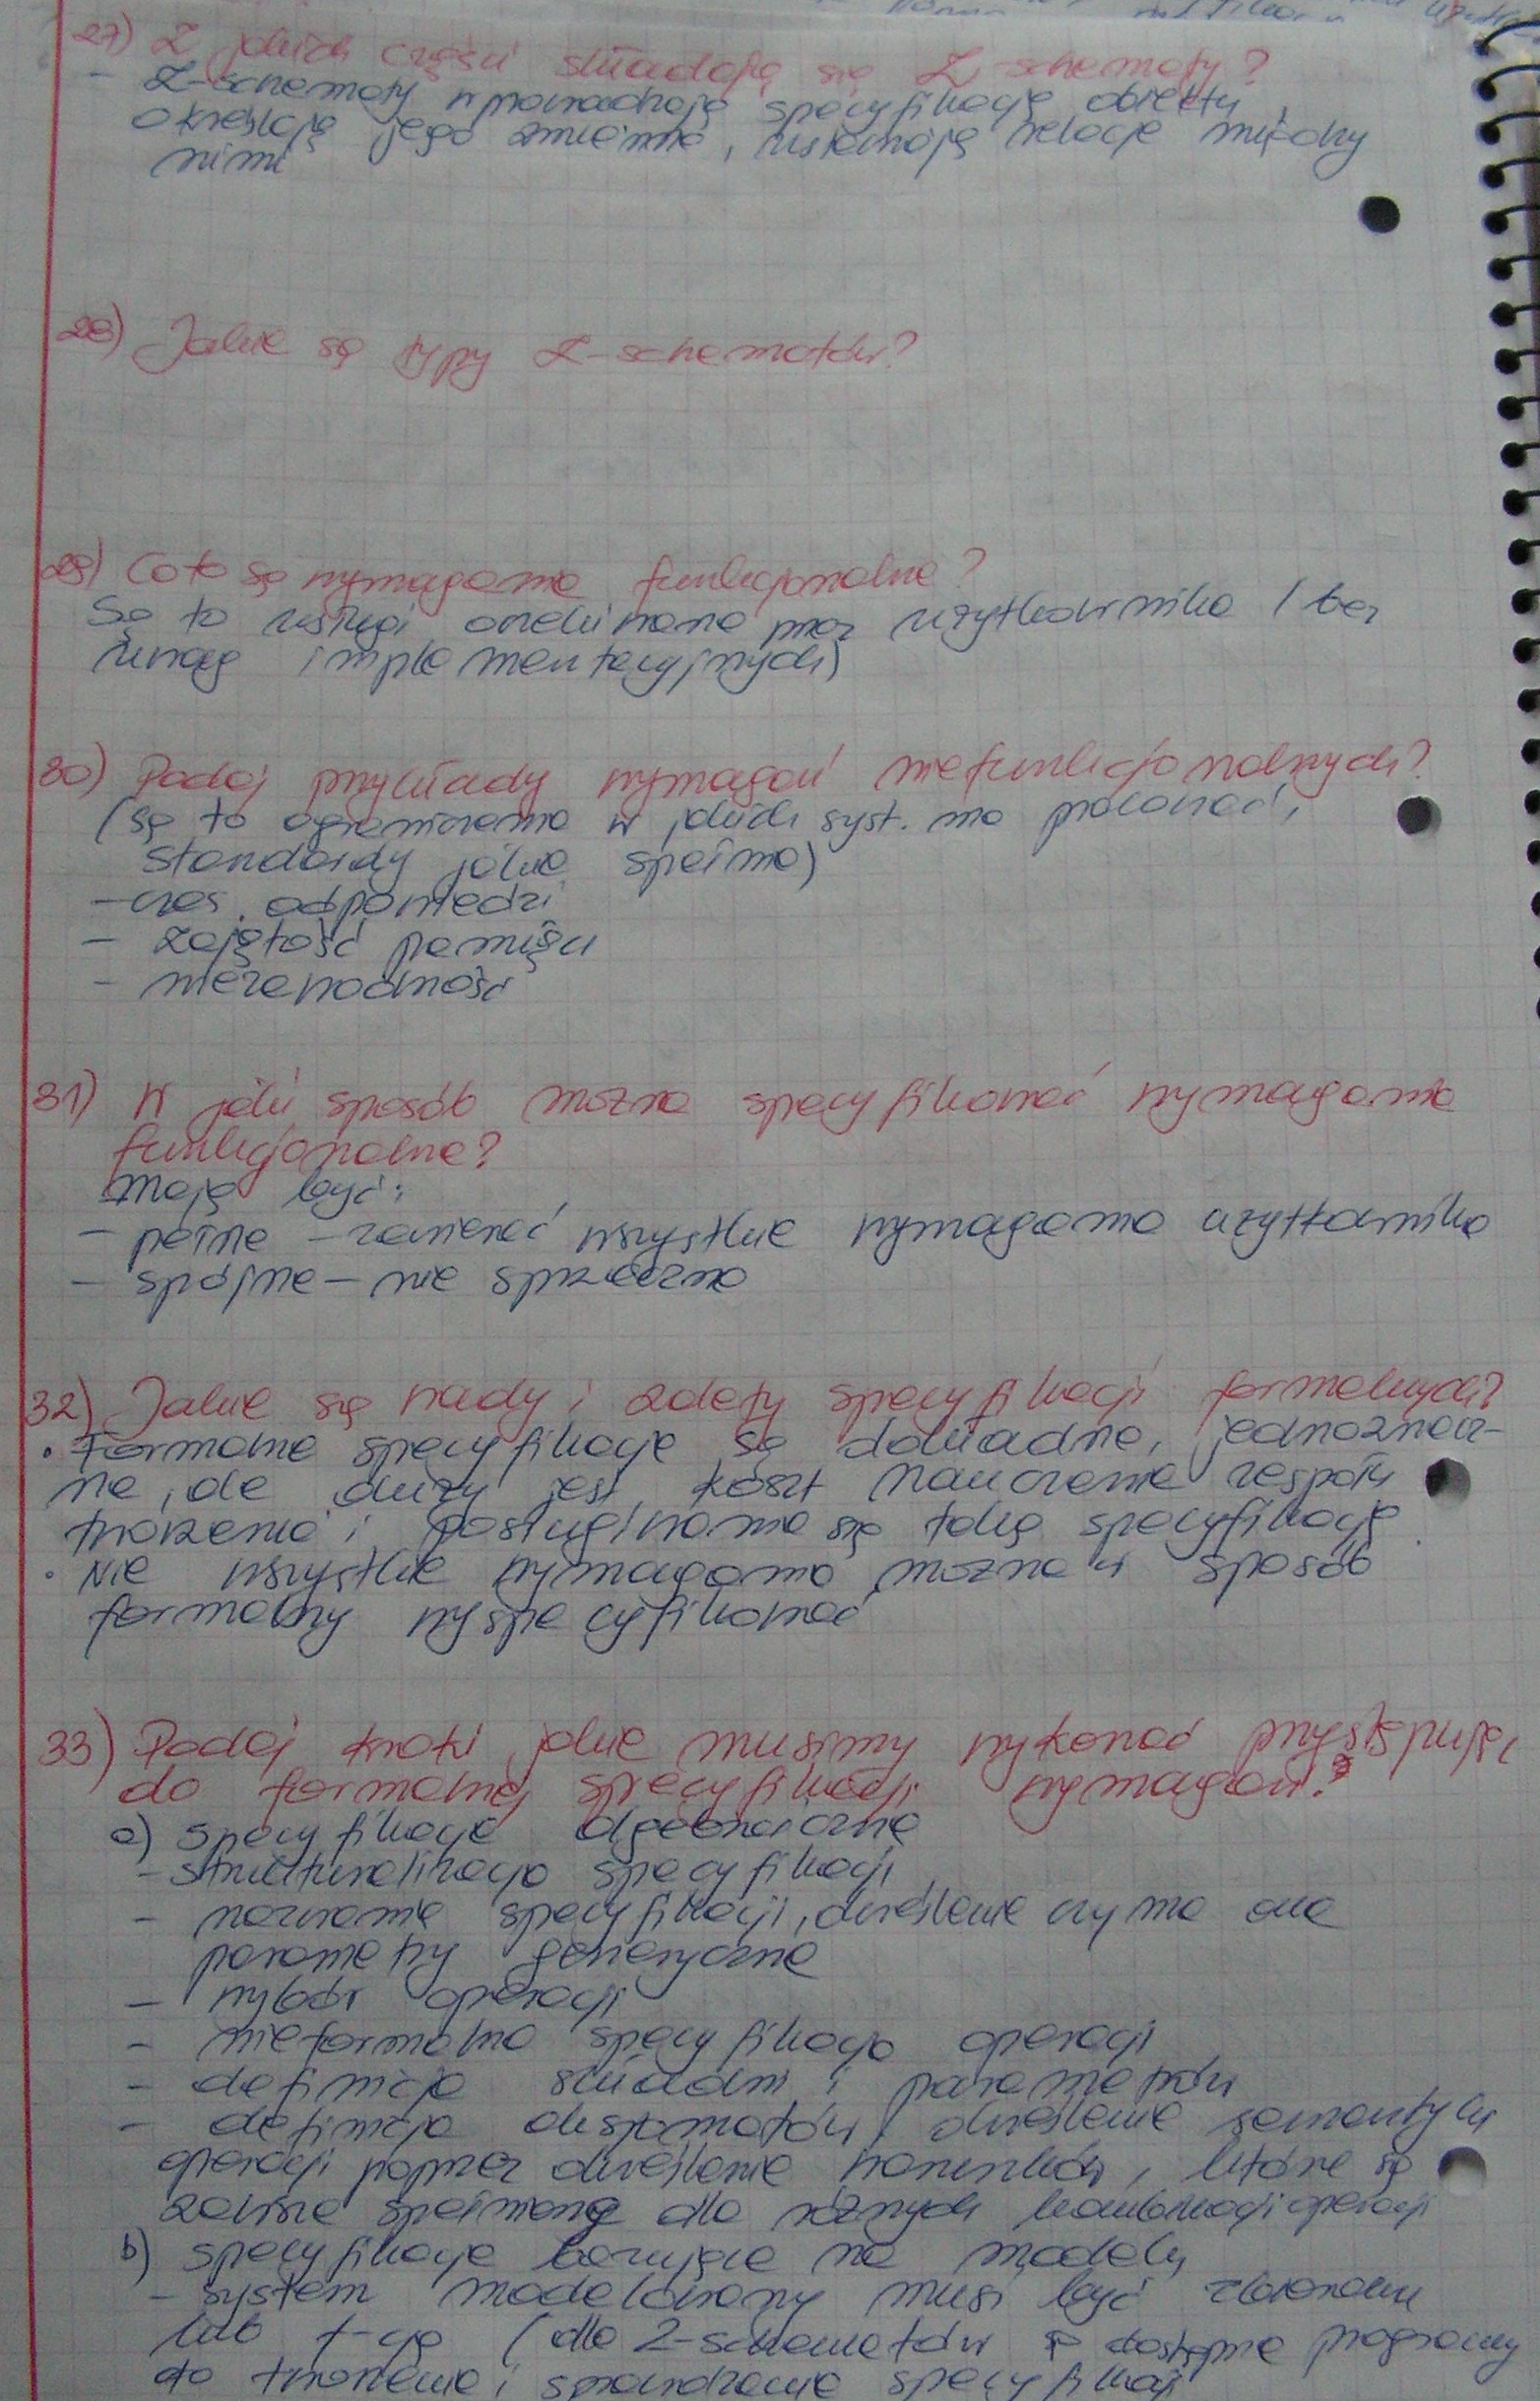 27) Z jakich części składają się Z-schematy?
- Z-schematy wprowadzają specyfikację obiektu,
określają jego zmienne, ustanawiają relacje między
nimi
28) Jakie są typy Z-schematów?
29) Co to są wymagania funkcjonalne?
Są to usługi oczekiwane przez użytkownika (bez
uwag implementacyjnych)
30) Podaj przykłady wymagań niefunkcjonalnych?
(są to ograniczenia w jakich syst. ma pracować,
standardy jakie spełnia)
- czas odpowiedzi
- zajętość pamięci
- niezawodność
31) W jaki sposób można specyfikować wymagania
funkcjonalne?
mają być:
- pełne - zawierać wszystkie wymagania użytkownika
- spójne - nie sprzeczne
32) Jakie są wady i zalety specyfikacji formalnych?
• Formalne specyfikacje są dokładne, jednoznacz-
ne, ale duży jest koszt nauczenia zespołu
tworzenia i posługiwania się taką specyfikacją
• Nie wszystkie wymagania można w sposób
formalny wyspecyfikować
33) Podaj kroki jakie musimy wykonać przystępując
do formalnej specyfikacji wymagań?
a) specyfikacje algebraiczne
- strukturalizacja specyfikacji
- nazwanie specyfikacji, określenie czy ma ona
parametry generyczne
- wybór operacji
- nieformalna specyfikacja operacji
- definicja składni i parametrów
- definicja aksjomatów, określenie semantyki
operacji poprzez określenie warunków, które są
zawsze spełnione dla różnych kombinacji operacji
b) specyfikacje bazujące na modelu
- system modelowany musi być zbiorem
lub f-cją (dla Z-schematów są dostępne programy
do tworzenia i sprawdzania specyfikacji